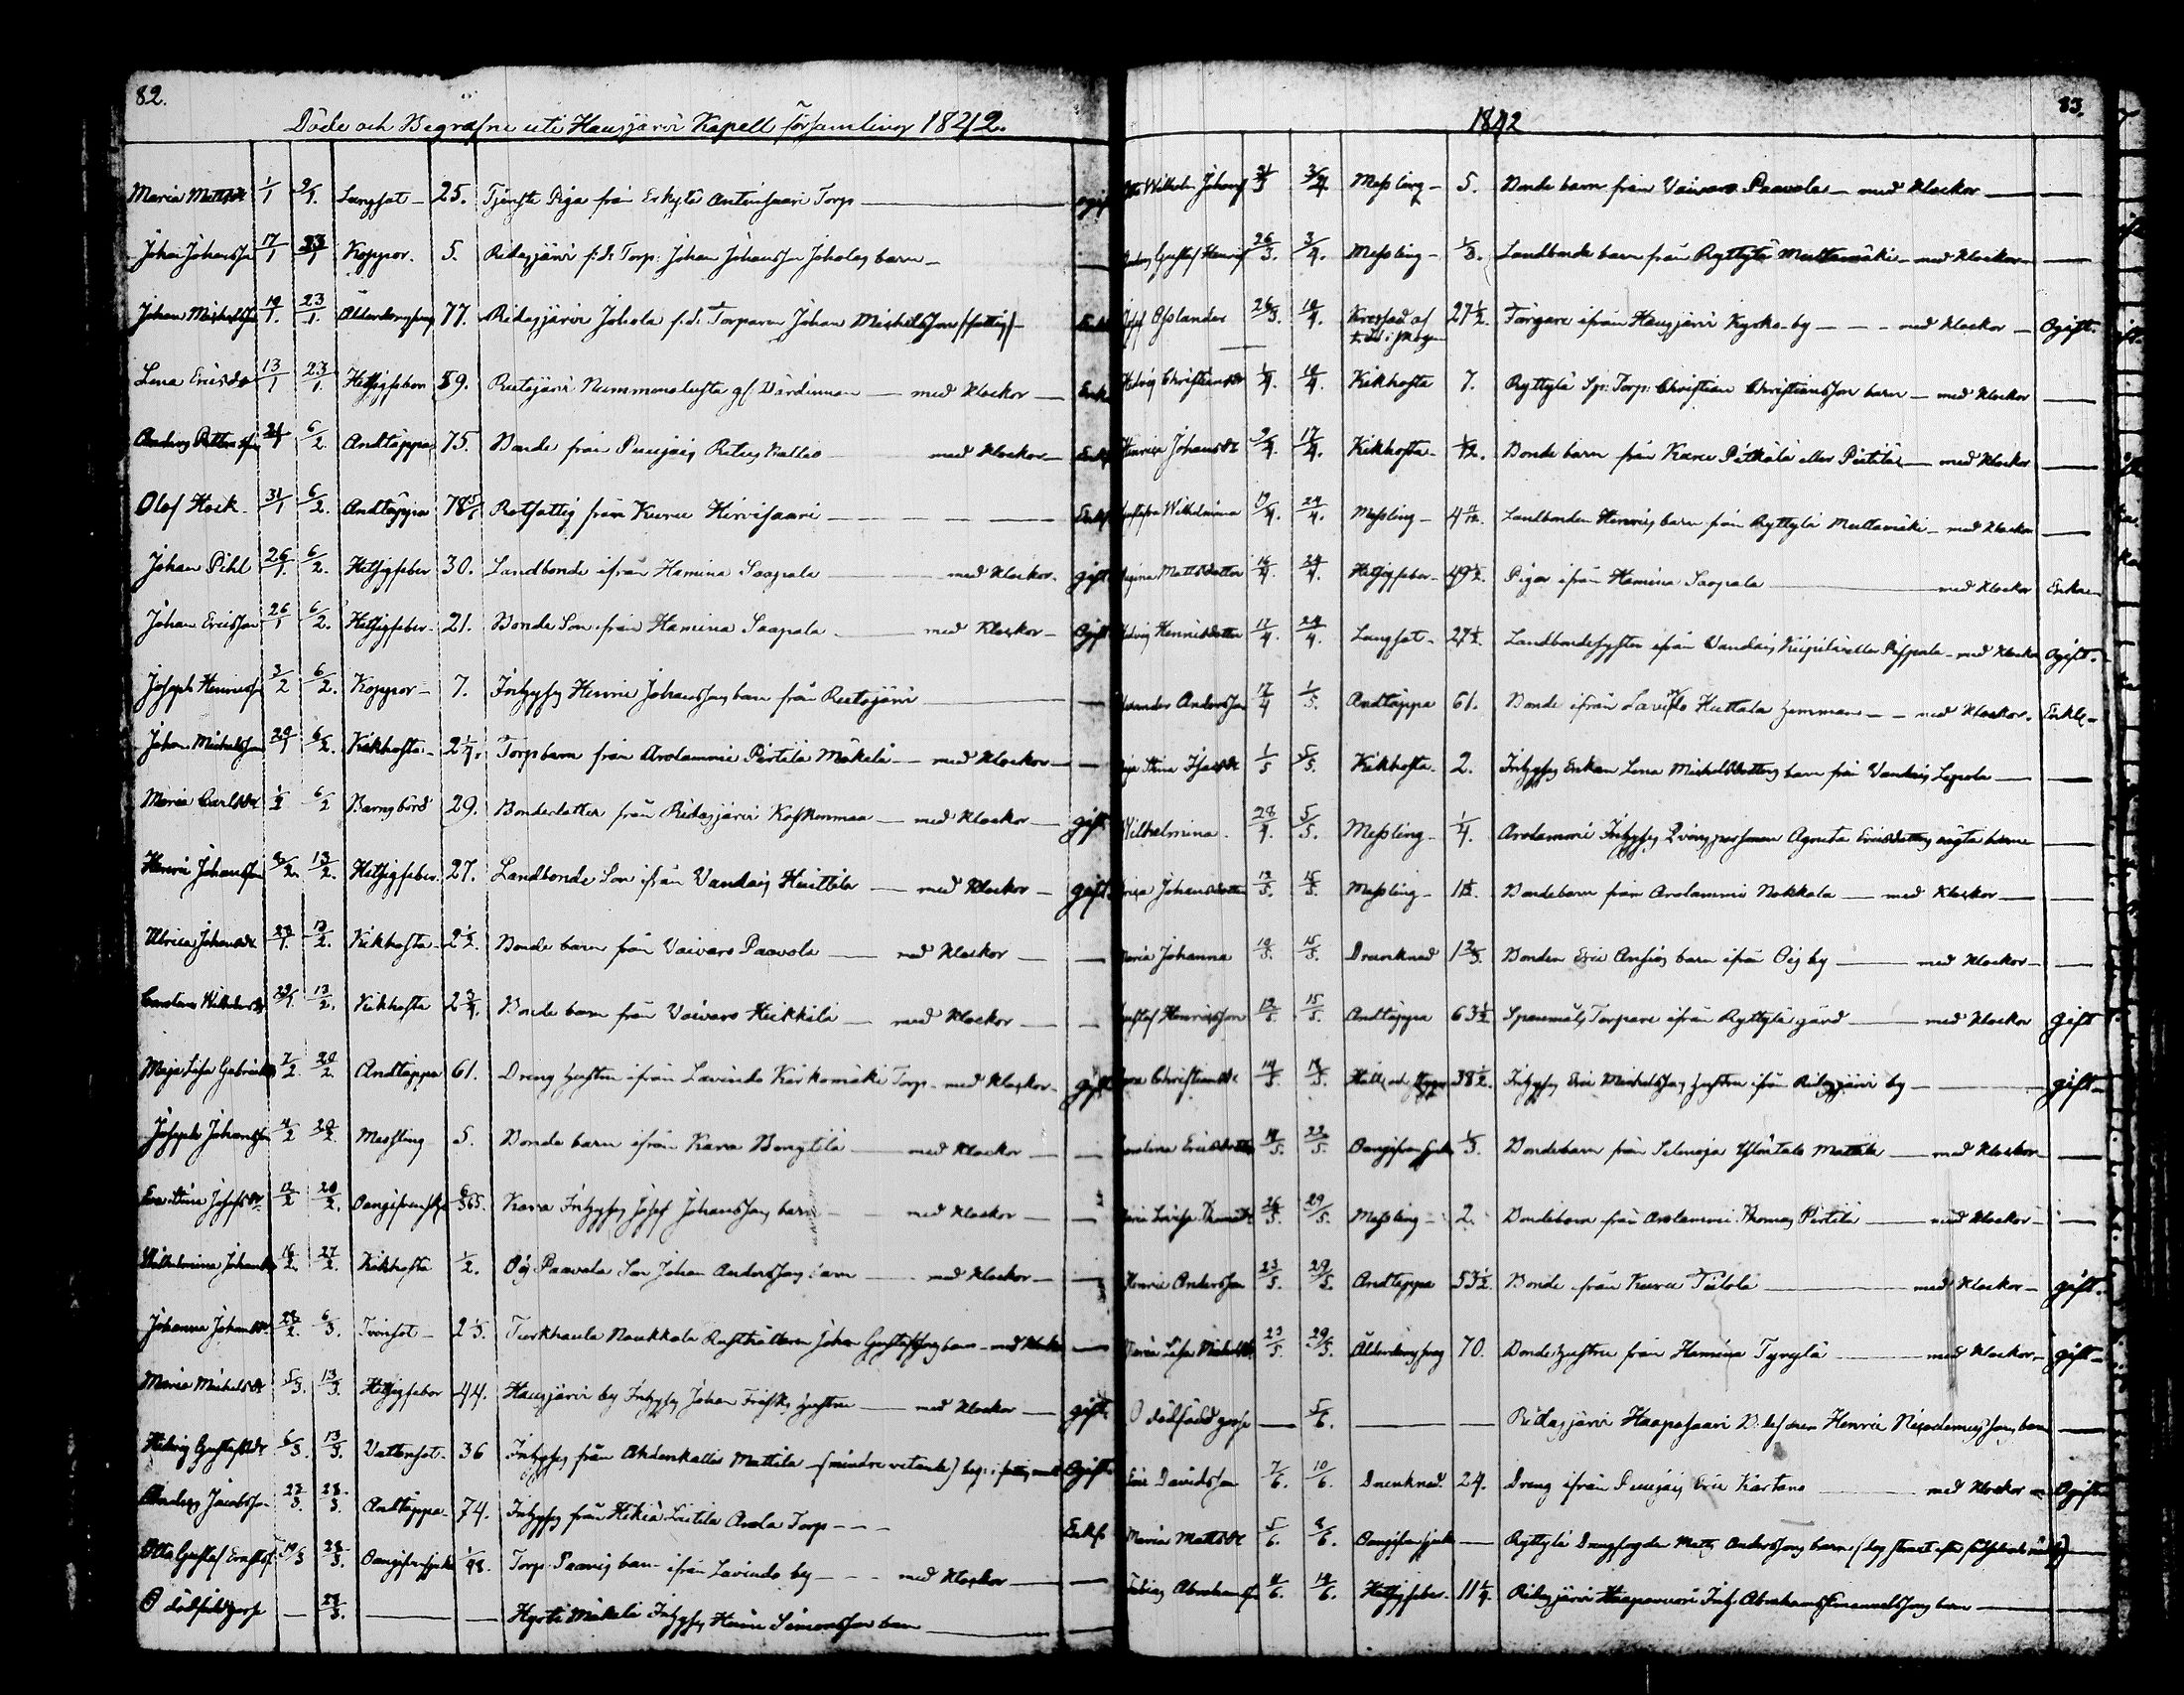 82.
Döde och Begrafne uti Hausjärvi Kapell församling 1842.
Maria Mattsdr 1/1 9/1. Lungsot - 25. Tjenste Piga från Erkylä Antinsaari Torp
Johan Johansson 17/1 23/1 Koppor. 5. Ridasjärvi f.d. Torp. Johan Johansson Joholas barn -
Johan Michelsson 19/1. 23/1. Ålderdomssvag 77. Ridasjärvi Johola f.d. Torparen Johan Michelsson (fattig) Enkl.
Lena Ericsdr 13/1 23/1. Hetsigfeber 59. Rutajärvi Nummenalusta gl. Värdinnan - med Klockor - Enka
Anders Pettersson 24/1 6/2. Andtäppa 75. Bonde från Puujais Retus Kallis - med Klockor - Enkl.
Olof Hock. 31/1 6/2. Andtäppa 78 5/6 Rotfattig från Kuru Hirvisaari - Enkl.
Johan Pihl 26/1. 6/2. Hetsigfeber 30. Landbonde ifrån Hamina Saapala - med Klockor. gift
Johan Ericsson 26/1 6/2. Hetsigfeber 21. Bonde Son från Hamina Saapala - med Klockor - Ogift
Joseph Henricsson 3/2 6/2. Koppor - 7. Inhyses Henric Johanssons barn från Rutajärvi
Johan Michelsson 29/1 6/2. Kikhosta - 2 1/4. Torp barn från Arolammi Pertilä Mäkelä - med Klockor -
Maria Carlsdr 1/2 6/2 Barnsbörd 29. Bondedotter från Ridasjärvi Koskenmaa - med Klockor - gift
Henric Johansson 8/2. 13/2. Hetsigfeber. 27. Landbonde Son ifrån Vandais Huittila - med Klockor - gift.
Ulrica Johansdr 29/1. 13/2. Kikhosta 2 1/2. Bonde barn från Vaivaro Paavola - med Klockor -
13/2. Kikhosta 2 3/4. Bonde barn från Vaivaro Heikkilä - med Klockor -
Maja Lisa Gabrielsdr 7/2. 20/2. Andtäppa 61. Dreng hustru ifrån Lavindo Karkamäki Torp - med Klockor - gift
Joseph Johansson 11/2 20/2 Messling 5. Bonde barn ifrån Kara Bengtilä - med Klockor -
Eva Stina Josefsdr 12/2 20/2. Oangifven sjuk Kara Inhyses Josef Johanssons barn - med Klockor -
Wilhelmina Johansdr 16/2. 27/2. Kikhosta 1/2. Ois Paavola Son Johan Anderssons barn - med Klockor -
Johanna Johansdr 28/2. 6/3. Tvinsot - 2 1/3. Turkhauta Naukkala Rusthållaren Johan Gustafssons barn - med Klockor
Maria Michelsdr 5/3. 13/3. Hetsigfeber 44. Hausjärvi by Inhyses Johan Frisks hustru - med Klockor - gift.
Hedvig Gustafsdr 6/3. 13/3. Vattensot. 36 Inhyses från Ahdenkallis Mattila - (mindre vetande) Ogift
Anders Jacobsson 23/3. 28/3. Andtäppa - 74. Inhyses från Hikiä Eritilä Arola Torp - - - Enkl.
Otto Gustaf Ernstsson 19/3 28/3. Oangifven sjuk Torp. Paavis barn ifrån Lavindo by - - - med Klockor -
O dödfödd gosse - 28/3. Hyvti Mäkelä Inhyses Henric Simonsson barn
83.
1842
Otto Wilhelm Johansson 21/3 3/4. Messling - 5. Bonde barn från Vaivaro Paavola - med Klockor
Anders Gustaf Henricsson 26/3. 3/4. Messling - 1/3. Landbonde barn från Ryttylä Multamäki - med Klockor -
Josef Osslander 26/3. 10/4. 27 1/2. Färgare ifrån Hausjärvi Kyrko-by - - - med Klockor - Ogift.
Hedvig Christiansdr 1/4. 10/4. Kikhosta 7. Ryttylä Sp. Torp. Christian Christiansson barn - med Klockor
Henrica Johansdr 9/4. 17/4. Kikhosta - Bonde barn från Kuru Pitkälä eller Pietilä - med Klockor
Gustafva Wilhelmina 19/4. 24/4. Messling - 4 11/12. Landbonden Henrics barn från Ryttylä Multamäki - med Klockor
Regina Mattsdotter 16/4. 24/4. Hetsigfeber - 49 1/2. Pigan ifrån Hamina Saapala - med Klockor Enka
Hedvig Henricsdotter 17/4. 24/4. Lungsot - 27 1/2. Landbondesyster ifrån Vandais Kuipilä eller Pispala - med Klockor Ogift.
Alexander Andersson 17/4 1/5. Andtäppa 61. Bonde ifrån Lavindo Kuttala hemman - - med Klockor. Enkl. -
Maja Stina Isacsdr 1/5 5/5. Kikhosta. 2. Inhyses Enkan Lena Michelsdotters barn från Vandais Lepola -
Wilhelmina. 28/4. 5/5. Messling - 1/4. Arolammi Inhyses Qvinsperson Agneta Ericsdotters oägta barn
Johansdotter 12/5. 15/5. Messling - Bondebarn från Arolammi Nokkala - med Klockor -
Maria Johanna 10/5. 15/5. Drunknad 1 2/3. Bonden Eric Ansios barn ifrån Ois by - med Klockor -
Gustaf Henricsson 12/5. 15/5. Andtäppa 63 1/2 Spanmåls Torpare ifrån Ryttylä gård - med Klockor gift
Christiansdr 14/5. 18/5. Håll och stygn 38 1/2. Inhyses Eric Michelssons hustru ifrån Ridasjärvi by - gift -
Carolina Ericsdotter 14/5. 22/5. Oangifven sjuk 1/3. Bondebarn från Selmoja Ylöstalo Mattila - med Klockor -
Maria Lovisa Thomasdr 26/5. 29/5. Messling - 2. Bondebarn från Arolammi Thomas Pertilä - med Klockor -
Henric Andersson 23/5. 29/5. Andtäppa 53 1/2. Bonde från Kuru Tulola - med Klockor - gift.
Maria Lisa Michelsdr 23/5. 29/5. Ålderdomssvag 70. Bondehustru från Hamina Tyrylä - med Klockor - gift -
O dödfödd gosse - 5/6. Ridasjärvi Haapasaari Henric Nicodemussons barn
Eric Davidsson 7/6. 10/6. Drunknad. 24. Dreng ifrån Puujais Eric Kartano - med Klockor - Ogift
Maria Mattsdr 5/6. 8/6. Oangifven sjuk - Ryttylä Drengfogden Matts Anderssons barn
Tobias Abrahamsson 11/6. 19/6. Hetsigfeber. 11 1/4. Ridasjärvi Haapavuori Inh. Abraham Emanuelssons barn